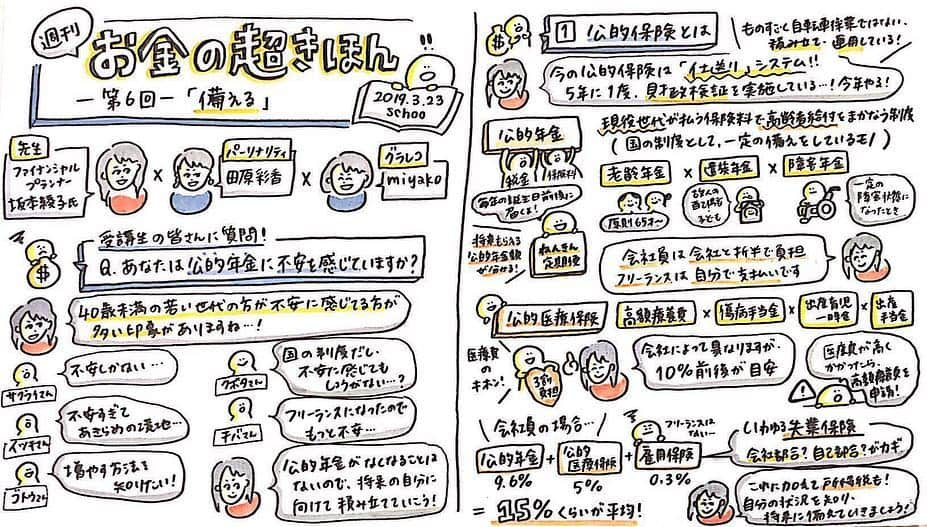 週刊
お金の超きほん!!
ー第6回ー「備える」
2019.3.23
schoo
先生
ファイナンシャル
プランナー
坂本綾子氏
×
パーソナリティ
田原彩香
×
グラレコ
miyako
受講生の皆さんに質問!
Q.あなたは公的年金に不安を感じていますか?
40歳未満の若い世代の方が不安に感じてる方が
多い印象がありますね…!
サクライさん
不安しかない…
クボタさん
国の制度だし、
不安に感じても
しょうがない…?
イツキさん
不安すぎて
あきらめの境地…
チバさん
フリーランスになったので
もっと不安…
ゴトウさん
増やす方法を
知りたい!
公的年金がなくなることは
ないので、将来の自分に
向けて積み立てていこう!
1 公的保険とは
ものすごく自転車操業ではない、
積み立て・運用している!
今の公的保険は「仕送り」システム!!
5年に1度、財政検証を実施している…!今年やる!
公的年金
税金
保険料
現役世代が払う保険料で高齢者給付をまかなう制度
(国の制度として、一定の備えをしているモノ)
老齢年金
×
遺族年金
×
障害年金
原則65才〜
故人の
配偶者
子ども
一定の
障害状態に
なったとき
毎年の誕生日前後に
届くよ!
ねんきん
定期便
将来もらえる
公的年金額
が分かる!
会社員は会社と折半で負担
フリーランスは自分で支払いです
公的医療保険
高額療養費
×
傷病手当金
×
出産育児
一時金
×
出産
手当金
医療費の
キホン!
3割
負担
会社によって異なりますが、
10%前後が目安
医療費が高く
かかったら、
高額療養費を
申請!
会社員の場合…
公的年金
+
公的
医療保険
+
雇用保険
9.6%
5%
0.3%
フリーランスには
ない…
いわゆる失業保険
会社都合?自己都合?がカギ
= 15%くらいが平均!
これに加えて所得税も!
自分の状況を知り、
将来に備えていきましょう!